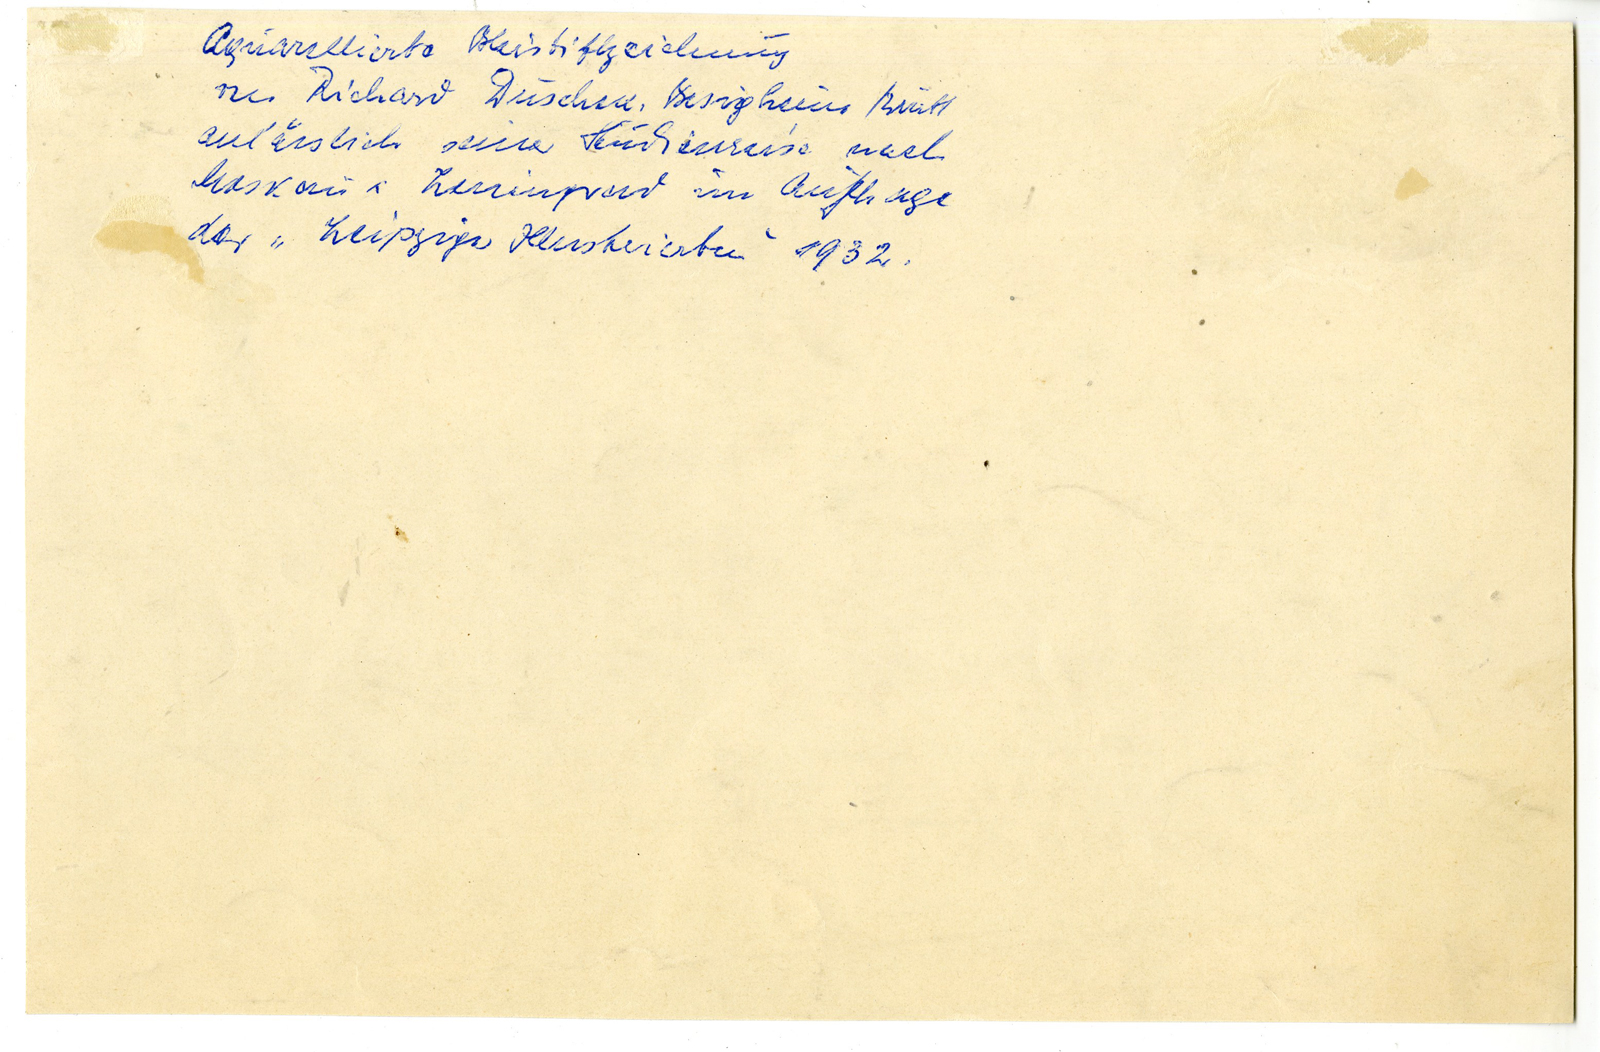 Aquarellierte Bleistiftzeichnung
von Richard Duschek, Besigheim Württ
anläßlich seiner Studienreise nach
Moskau & Leningrad im Auftrage
der „Leipziger Illustrierten" 1932.